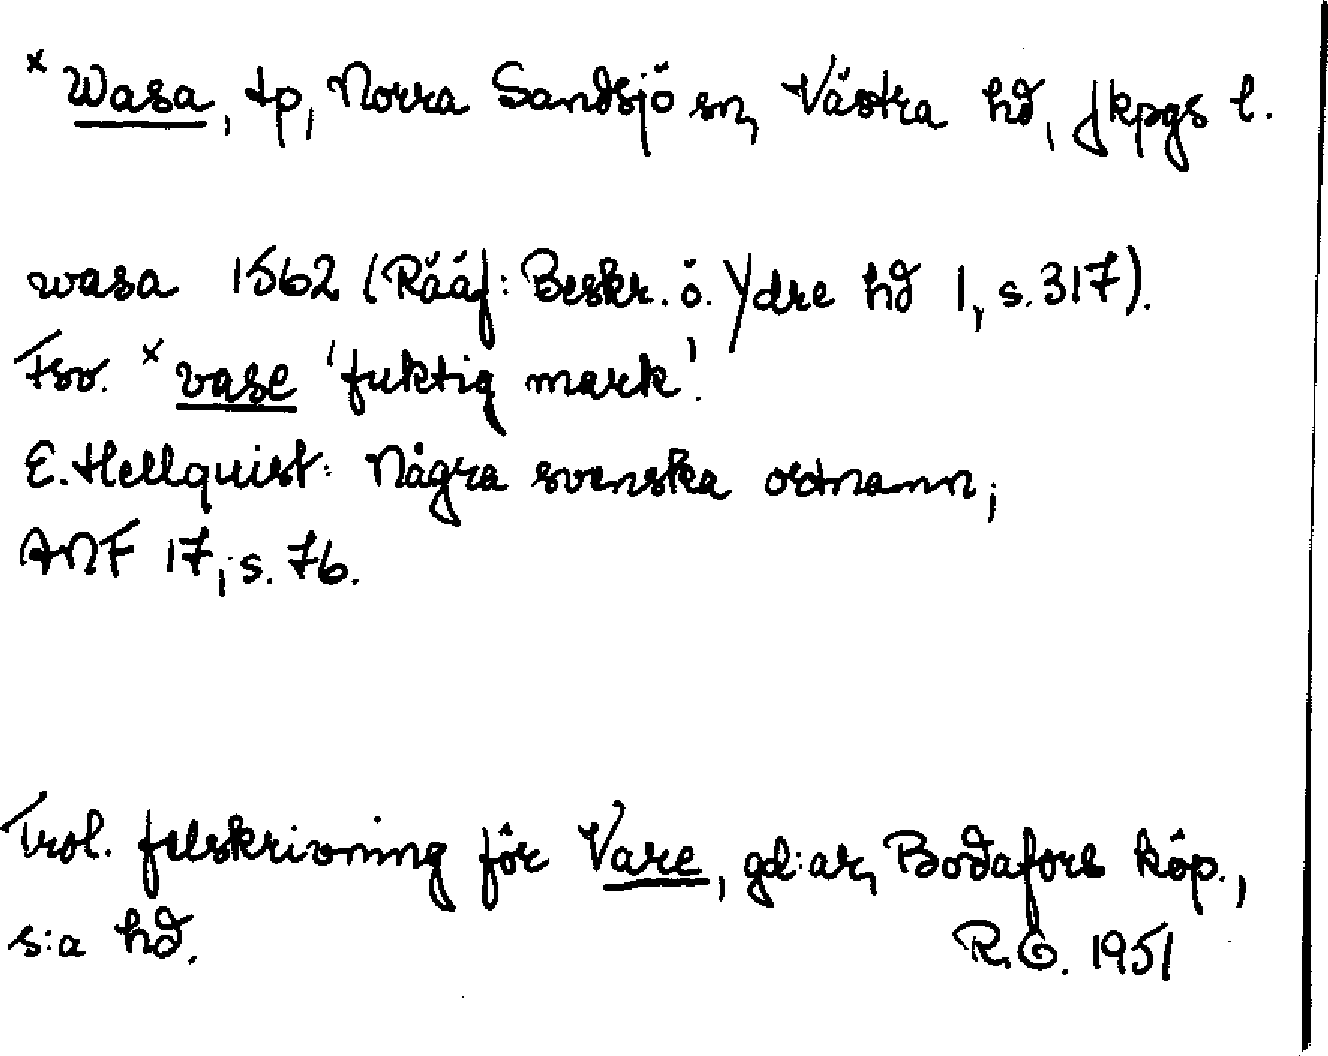 x Wasa, tp, Norra Sandsjö sn, Västra hd, Jkpgs l.
wasa 1562 (Rääf: Beskr. ö. Ydre hd 1, s. 317).
Fsv. x vase 'fuktig mark'.
E. Hellquist: Några svenska ortnamn;
ANF 17, s. 76.
Trol. felskrivning för Vare, gd:ar, Bodafors köp.,
s:a hd.
R.E. 1951